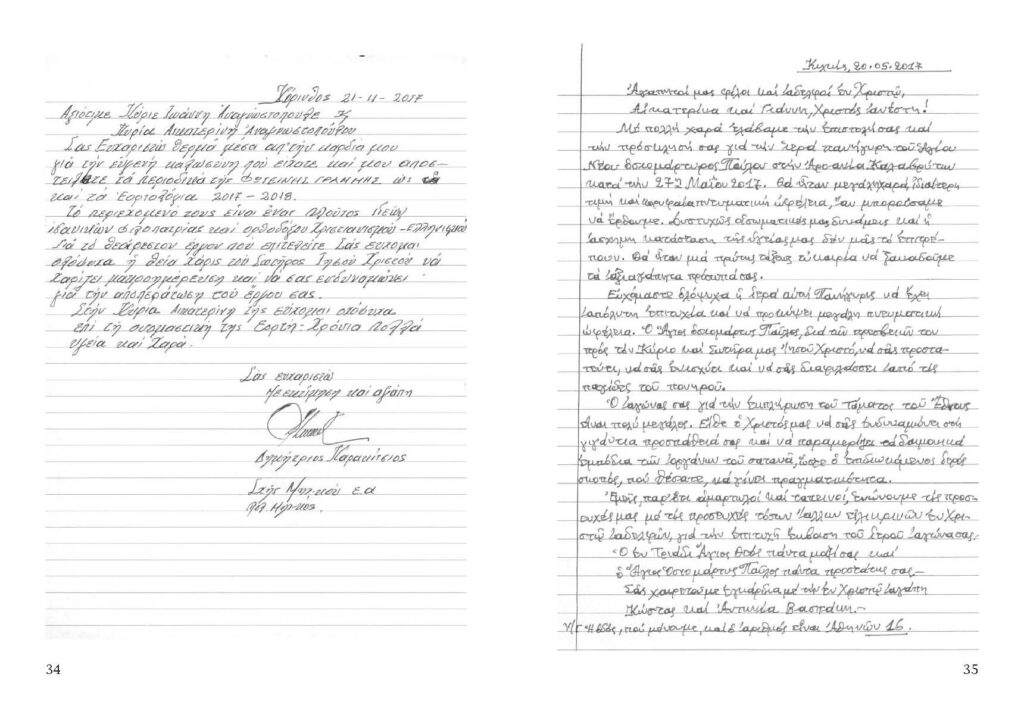 Κόρινθος 21-11-2017
Αξιότιμε Κύριε Ιωάννη Αναγνωστόπουλε
Κυρία Αικατερίνη Αναγνωστοπούλου
Σας Ευχαριστώ θερμά μέσα απ' την καρδιά μου
για την ευγενή καλωσύνη που είχατε και μου αποσ-
τείλατε τα περιοδικά της ΦΩΤΕΙΝΗΣ ΓΡΑΜΜΗΣ ως
και τα Εορτολόγια 2017-2018.
Το περιεχόμενό τους είναι ένας πλούτος ιδεών
ιδανικών φιλοπατρίας και ορθοδόξου Χριστιανισμού-Ελληνισμού
Για το θεάρεστον έργον που επιτελείτε Σας εύχομαι
ολόψυχα ή θεία Χάρις του Σωτήρος Ιησού Χριστού να
χαρίζει μακροημέρευση και να σας ενδυναμώνει
για την αποπεράτωση του έργου σας.
Στην Κυρία Αικατερίνη της εύχομαι ολόψυχα
επί τη ονομαστική της Εορτή: Χρόνια Πολλά
υγεία και χαρά.
Σας ευχαριστώ
Με εκτίμηση και αγάπη
Δημήτριος
34
Κιλκίς, 20.05.2017
Ἀγαπητοί μας φίλοι καί ἀδελφοί ἐν Χριστῷ,
Αἰκατερίνα καί Γιάννη, Χριστός ἀνέστη!
Μέ πολλή χαρά λάβαμε τήν ἐπιστολή σας καί
τήν πρόσκλησή σας γιά τήν ἱερά πανήγυρη τοῦ Ἁγίου
Νέου ὁσιομάρτυρος Παύλου στήν Ἀροανία Καλαβρύτων
κατά τήν 27η Μαΐου 2017. Θά ἦταν μεγάλη χαρά, ἰδιαίτερη
τιμή καί κορυφαία πνευματική ὠφέλεια, ἐάν μπορούσαμε
νά ἔρθουμε. Δυστυχῶς οἱ σωματικές μας δυνάμεις καί ἡ
ἄσχημη κατάσταση τῆς ὑγείας μας δέν μᾶς τό ἐπιτρέ-
πουν. Θά ἦταν μιά πρώτης τάξεως εὐκαιρία νά ξαναδοῦμε
τά ἀξιαγάπητα πρόσωπά σας.
Εὐχόμαστε ὁλόψυχα ἡ ἱερά αὐτή Πανήγυρις νά ἔχει
ἀπόλυτη ἐπιτυχία καί νά προκύψει μεγάλη πνευματική
ὠφέλεια. Ὁ Ἅγιος ὁσιομάρτυς Παῦλος, διά τῶν πρεσβειῶν του
πρός τόν Κύριο καί Σωτήρα μας Ἰησοῦ Χριστό, νά σᾶς προστα-
τεύει, νά σᾶς ἐνισχύει καί νά σᾶς διαφυλάσσει ἀπό τίς
παγίδες τοῦ πονηροῦ.
Ὁ ἀγώνας σας γιά τήν ἐκπλήρωση τοῦ Τάματος τοῦ Ἔθνους
εἶναι πολύ μεγάλος. Εἴθε ὁ Χριστός μας νά σᾶς ἐνδυναμώνει στή
γιγάντια προσπάθειά σας καί νά παραμερίζει τά δαιμονικά
ἐμπόδια τῶν ὀργάνων τοῦ σατανᾶ, ὥστε ὁ ἐπιδιωκόμενος ἱερός
σκοπός, πού θέσατε, νά γίνει πραγματικότητα.
Ἐμεῖς, παρ' ὅτι ἁμαρτωλοί καί ταπεινοί, ἑνώνουμε τίς προσ-
ευχές μας μέ τίς προσευχές τόσων ἄλλων εἰλικρινῶν ἐν Χρι-
στῷ ἀδελφῶν, γιά τήν ἐπιτυχῆ ἔκβαση τοῦ ἱεροῦ ἀγώνα σας.
Ὁ ἐν Τριάδι Ἅγιος Θεός πάντα μαζί σας καί
ὁ Ἅγιος Ὁσιομάρτυς Παῦλος πάντα προστάτης σας.-
Σᾶς χαιρετοῦμε ἐγκάρδια μέ τήν ἐν Χριστῷ ἀγάπη
Κώστας καί Ἀντωνία
Υ/Γ Ἡ ὁδός, πού μένουμε, καί ὁ ἀριθμός εἶναι Ἀθηνῶν 16.
35